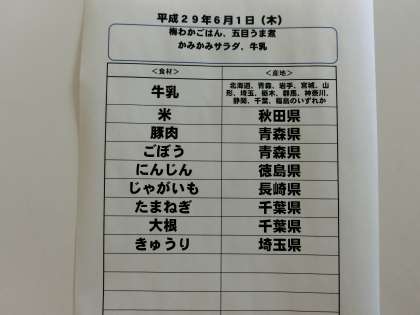 平成29年6月1日（木）
梅わかごはん、五目うま煮
かみかみサラダ、牛乳
＜食材＞ ＜産地＞
牛乳 北海道、青森、岩手、宮城、山
形、埼玉、栃木、群馬、神奈川、
静岡、千葉、福島のいずれか
米 秋田県
豚肉 青森県
ごぼう 青森県
にんじん 徳島県
じゃがいも 長崎県
たまねぎ 千葉県
大根 千葉県
きゅうり 埼玉県